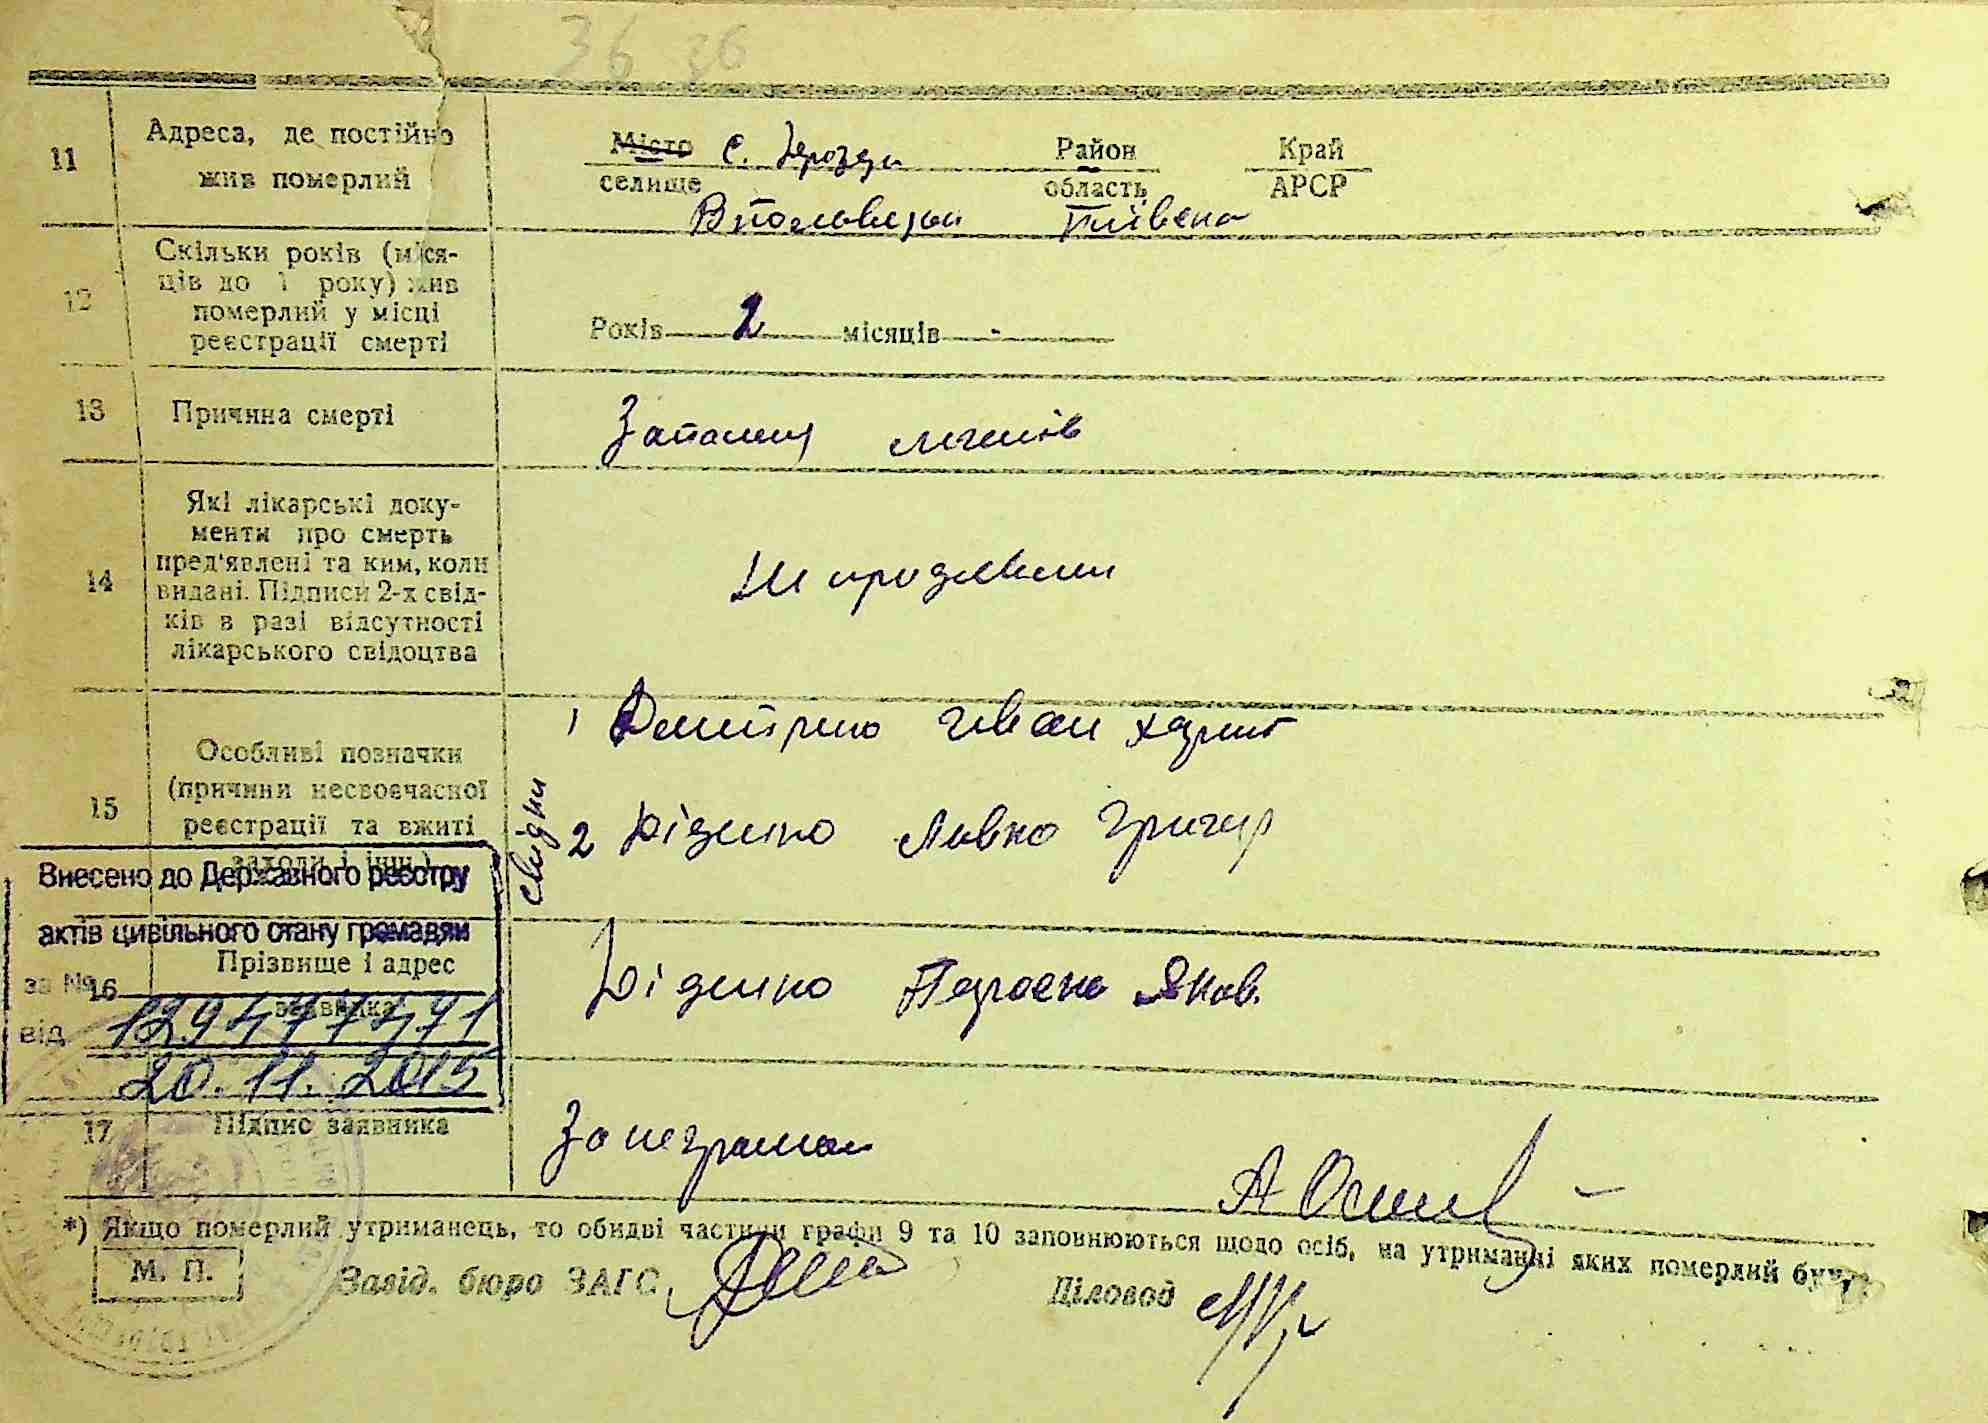 36 36
11
Адреса, де постійно
жив померлий
Місто с. Дрозди Район Край
селище область АРСР
Київська
12
Скільки років (міся-
ців до 1 року) жив
померлий у місці
реєстрації смерті
Років 2 місяців -
13
Причина смерті
Запалення легенів
14
Які лікарські доку-
менти про смерть
пред'явлені та ким, коли
видані. Підписи 2-х свід-
ків в разі відсутності
лікарського свідоцтва
15
Особливі позначки
(причини несвоєчасної
реєстрації та вжиті
заходи і інш.)
свидки
1 Дмитренко Иван
2 Діденко Павло Григор
Внесено до Державного реєстру
актів цивільного стану громадян
за №
від
20.11.2015
16
Прізвище і адрес
заявника
Діденко Яков.
17
Підпис заявника
За неграмотн
*) Якщо померлий утриманець, то обидві частини графи 9 та 10 заповнюються щодо осіб, на утриманні яких померлий був.
М. П.
Завід. бюро ЗАГС
Діловод